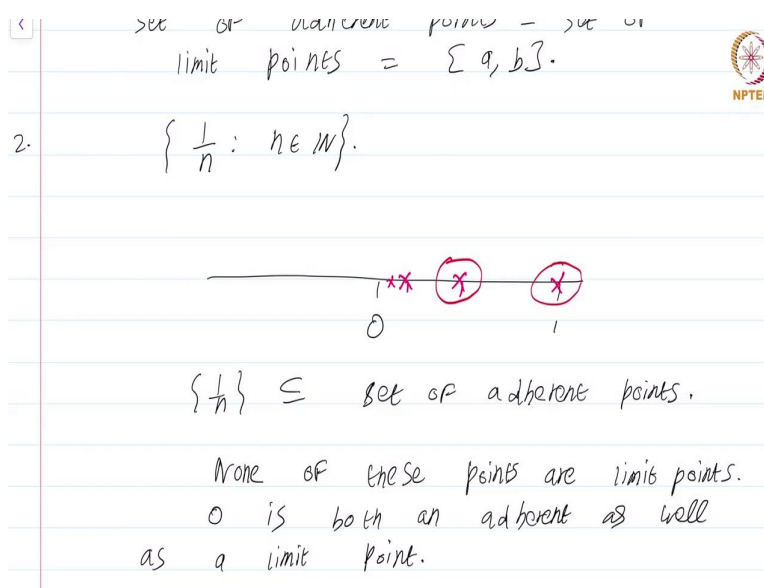 limit points = { a, b }.
NPTEL
2. { 1/n : n ∈ ℕ }.
0 1
{ 1/n } ⊆ set of adherent points.
None of these points are limit points.
0 is both an adherent as well
as a limit point.